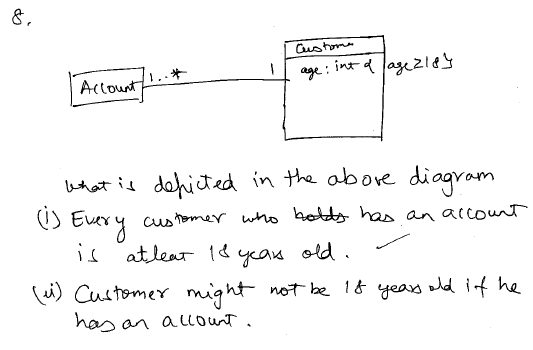 8.
Custome
age: int { age ≥ 18 }
Account 1..* 1
what is depicted in the above diagram
(i) Every customer who holds has an account
is atleat 18 years old.
(ii) Customer might not be 18 years old if he
has an account.